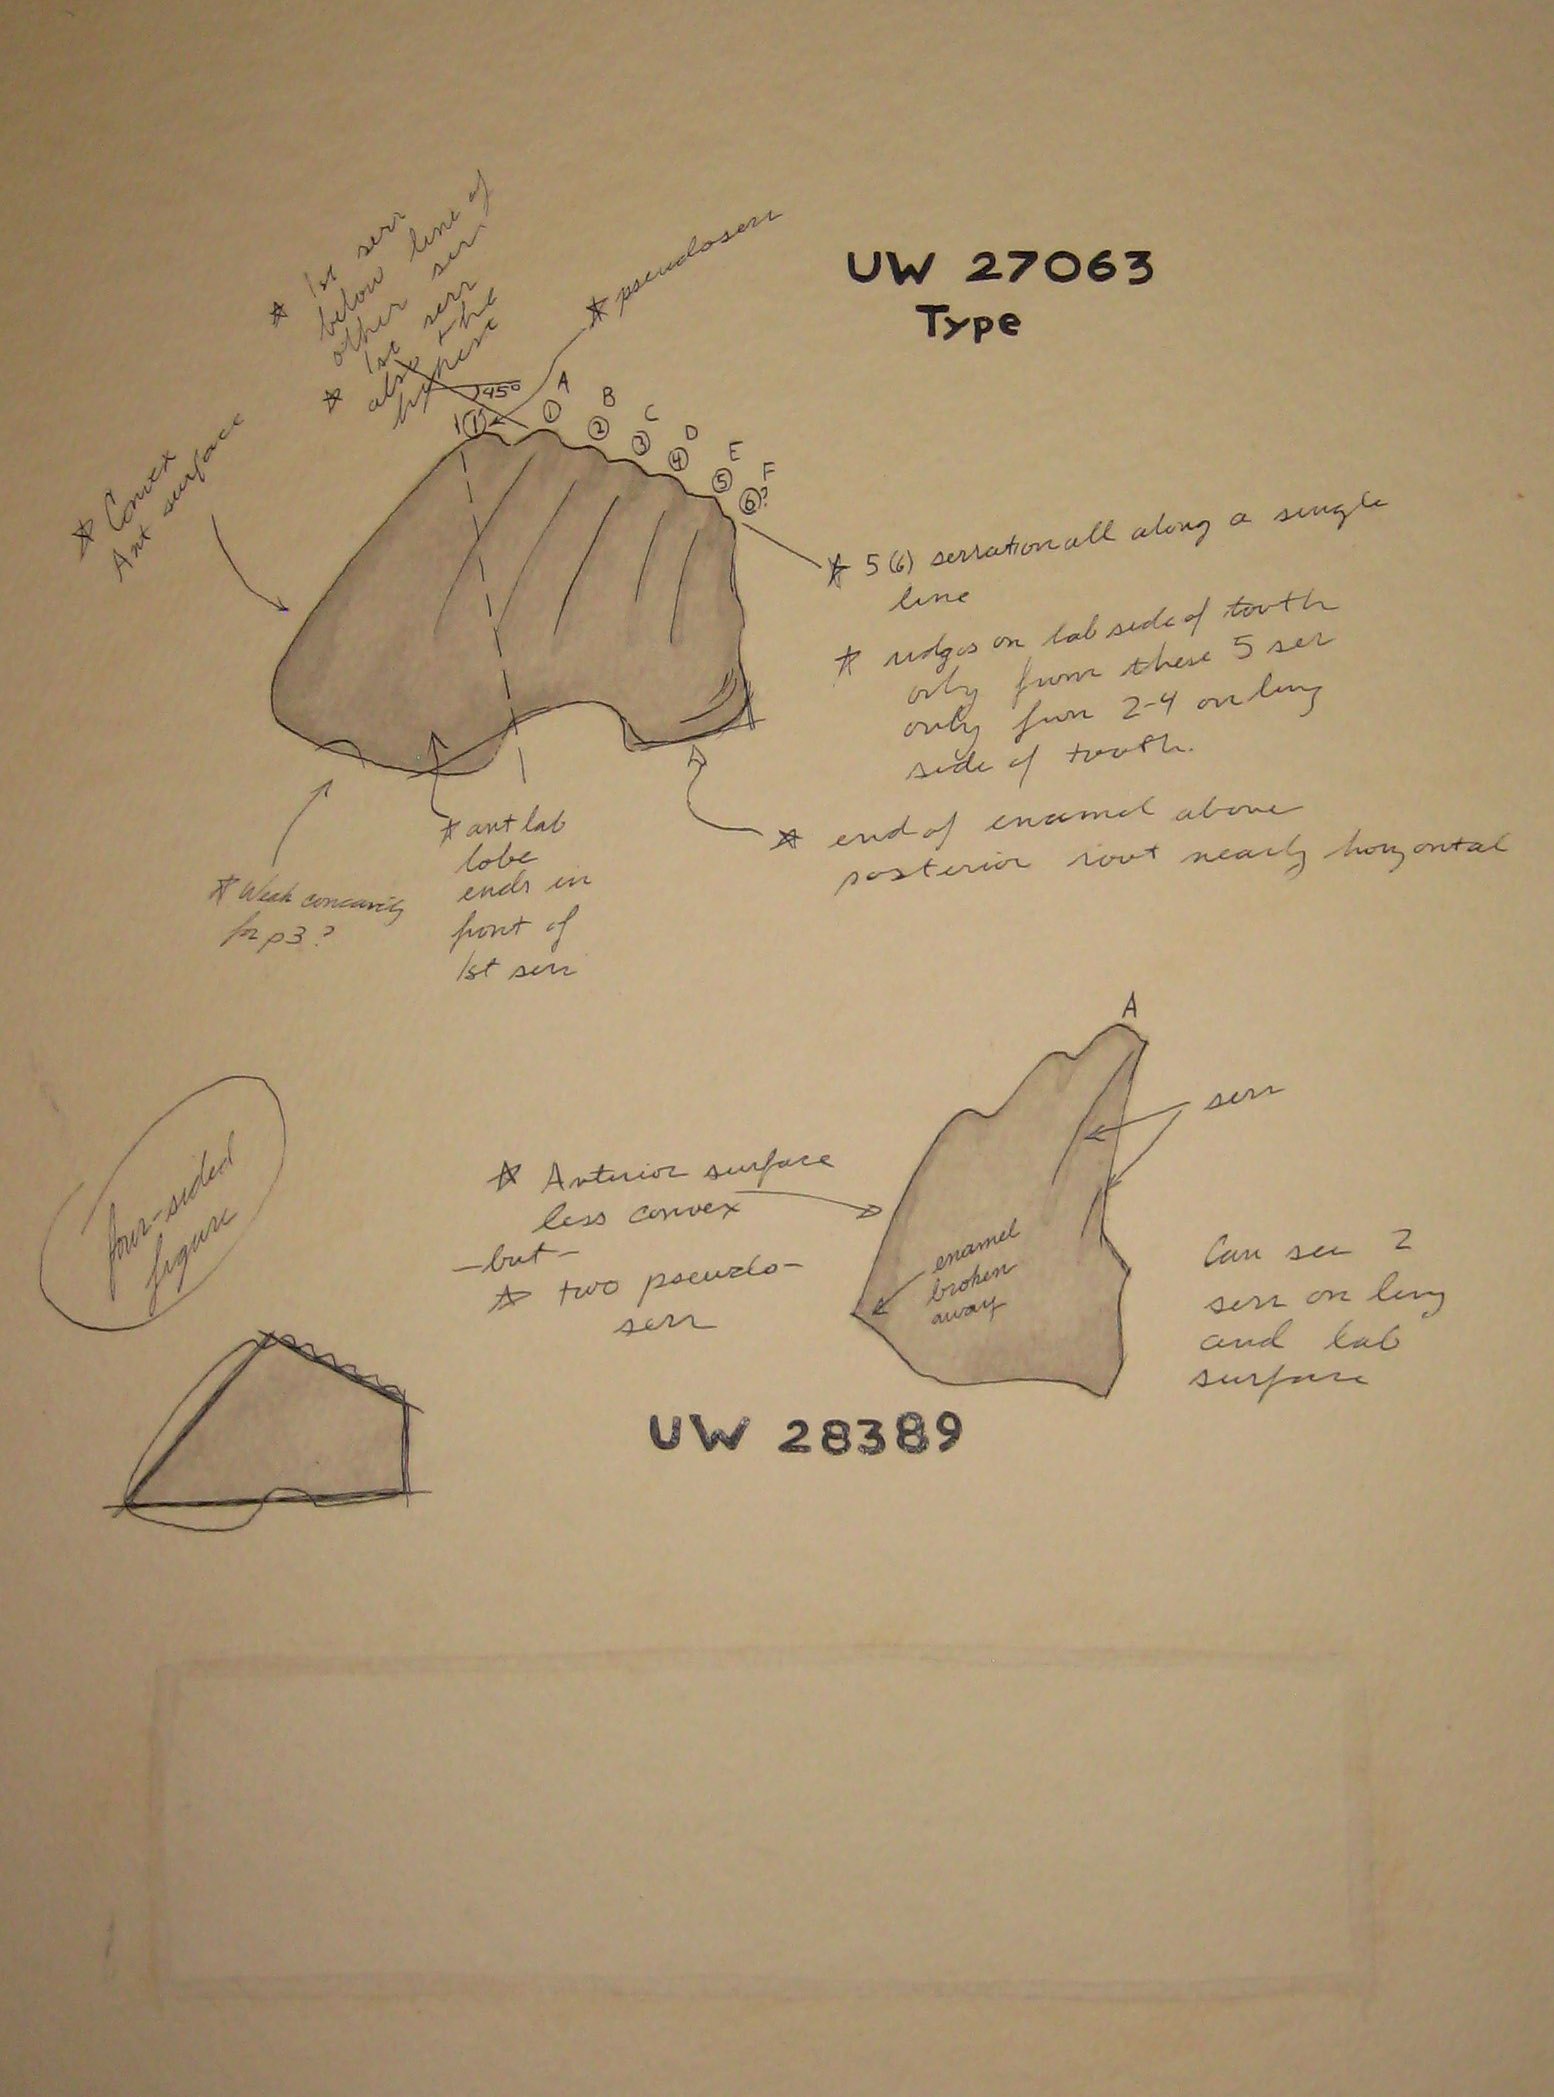 UW 27063
Type
☆ 1st serr
below line of
other serr
☆ 1st serr
also the
highest
☆ pseudoserr
45°
A
B
C
D
E
F
1
①
②
③
④
⑤
⑥?
☆ Convex
Ant surface
☆ 5(6) serration all along a single
line
☆ ridges on lab side of tooth
only from these 5 ser
only from 2-4 on ling
side of tooth.
☆ end of enamel above
posterior root nearly horizontal
☆ ant lab
lobe
ends in
front of
1st serr
☆ Weak concavity
for p3?
A
serr
☆ Anterior surface
less convex
-but-
☆ two pseudo-
serr
enamel
broken
away
Can see 2
serr on ling
and lab
surface
four-sided
figure
UW 28389